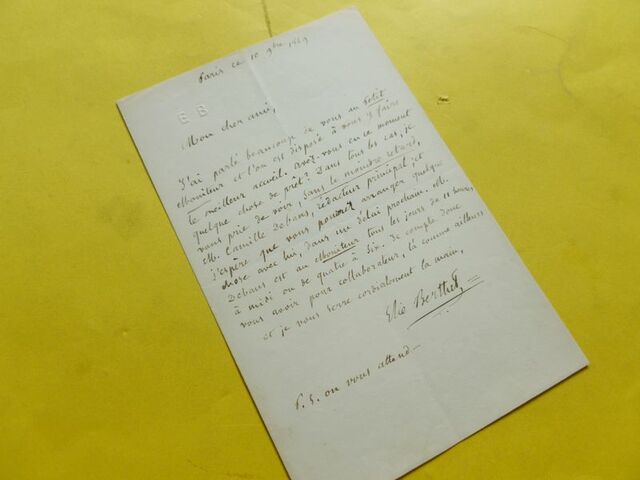 Paris ce 10 9bre 1869
E B
Mon cher ami,
J'ai parlé beaucoup de vous au Petit
Moniteur et l'on est disposé à vous y faire
le meilleur accueil. Avez-vous en ce moment
quelque chose de prêt? Dans tous les cas, je
vous prie de voir, sans le moindre retard,
M. Camille Debans, rédacteur principal; et
j'espère que vous pourrez arranger quelque
chose avec lui, dans un délai prochain. M.
Debans est au Moniteur tous les jours de 11 heures
à midi ou de quatre à six. Je compte donc
vous avoir pour collaborateur, là comme ailleurs
et je vous serre cordialement la main,
Elie Berthet
P. S. on vous attend